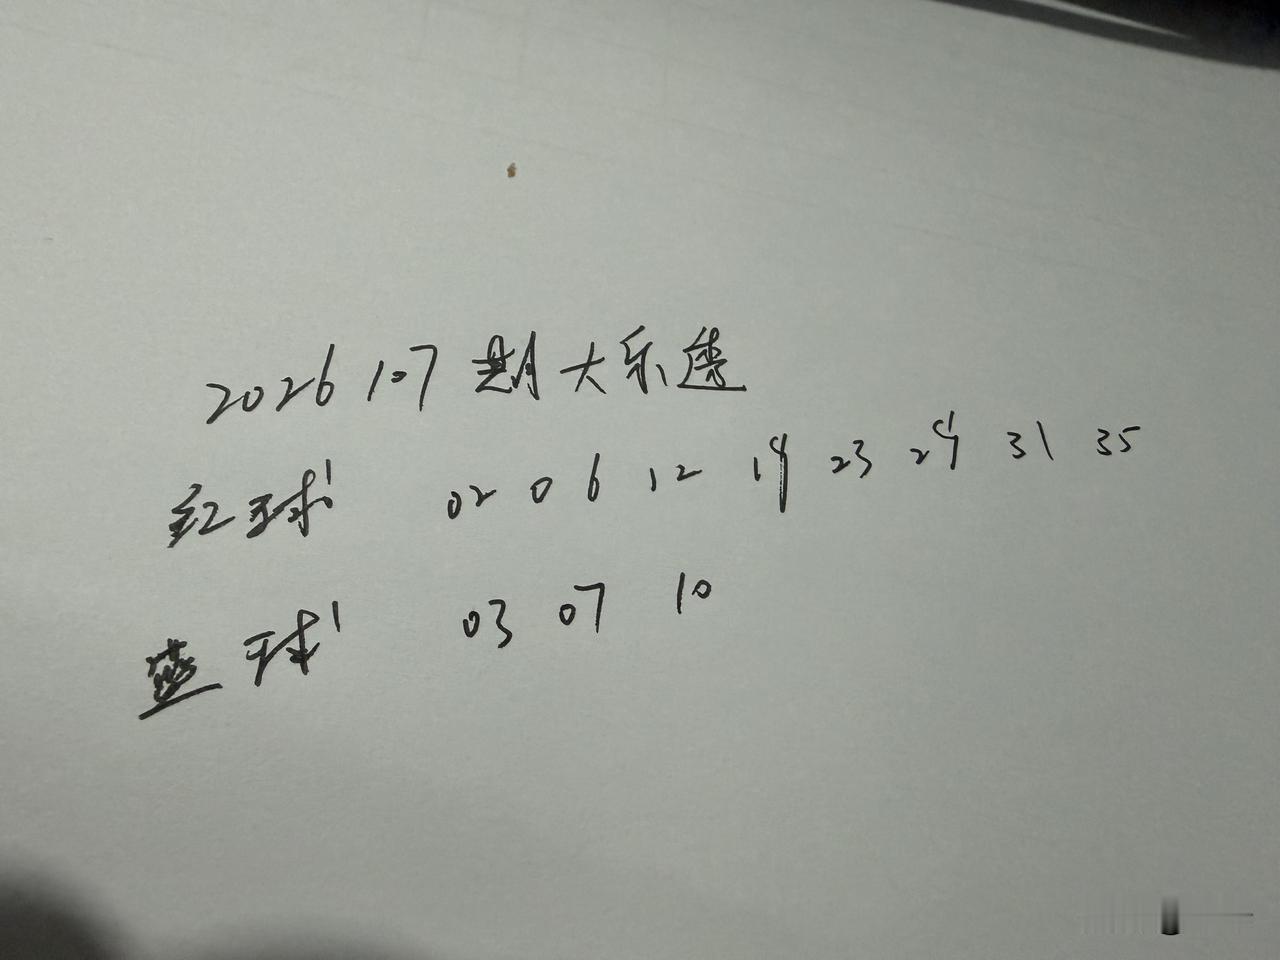 2026107期大乐透
红球 02 06 12 19 23 29 31 35
蓝球 03 07 10